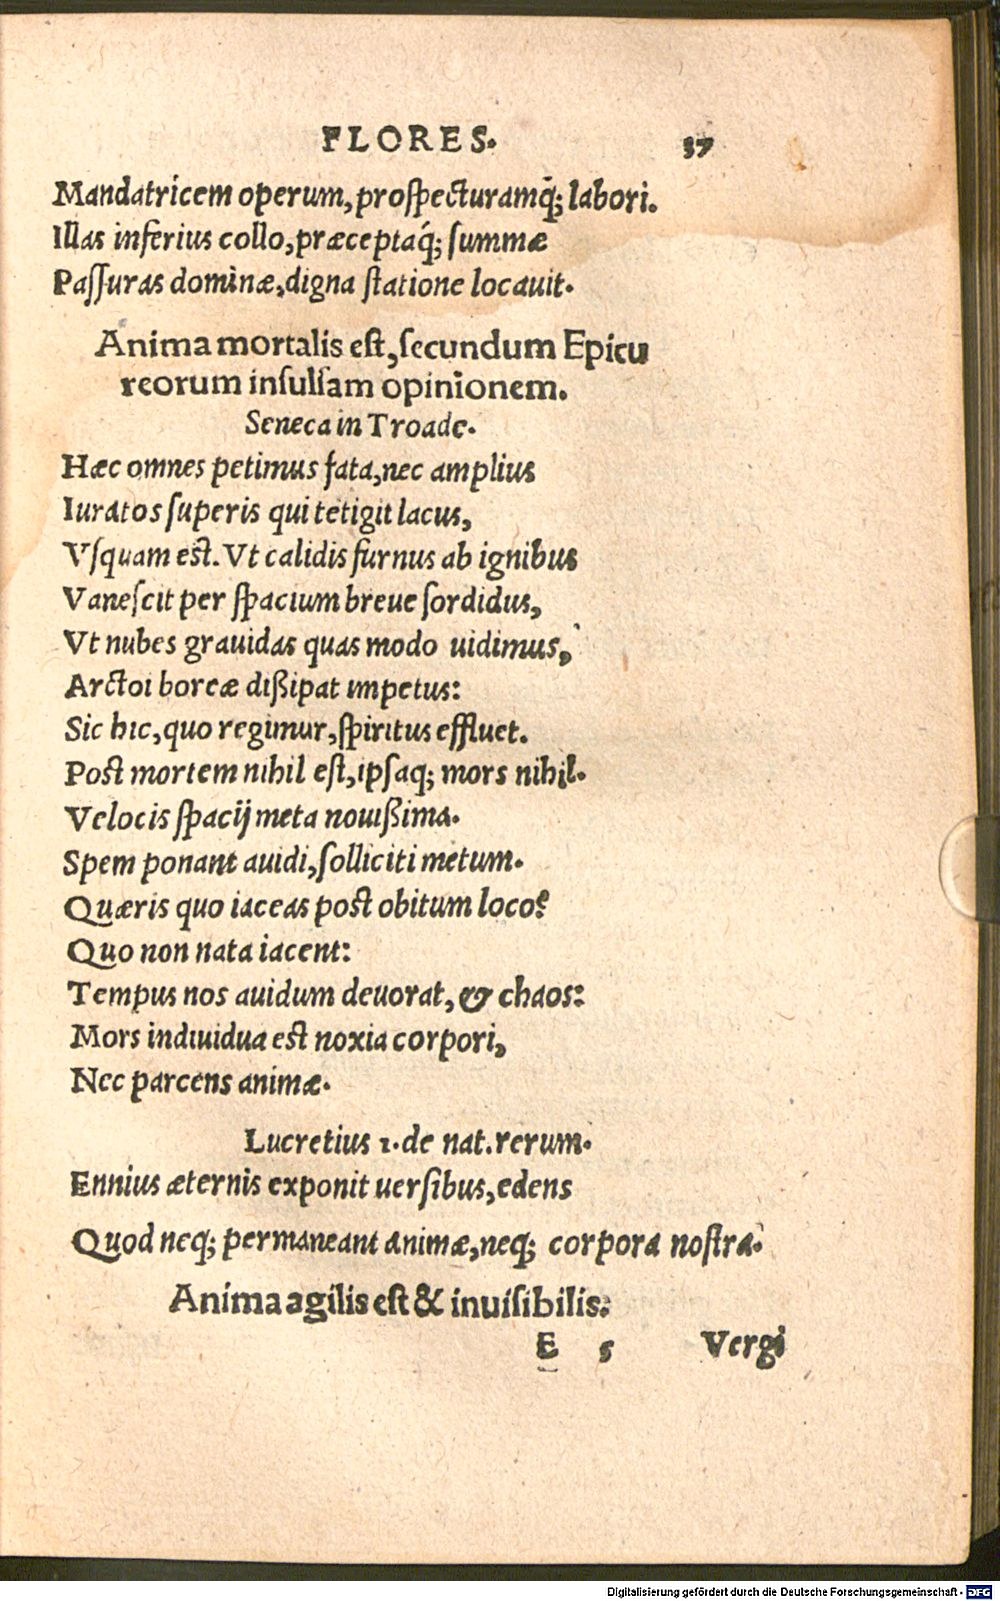 FLORES. 37
Mandatricem operum, prospecturamq́; labori.
Illas inferius collo, præceptaq́; summæ
Passuras dominæ, digna statione locauit.
Anima mortalis est, secundum Epicu
reorum insulsam opinionem.
Seneca in Troade.
Hæc omnes petimus fata, nec amplius
Iuratos superis qui tetigit lacus,
Vsquam est. Vt calidis furnus ab ignibus
Vanescit per spacium breue sordidus,
Vt nubes grauidas quas modo uidimus,
Arctoi boreæ dißipat impetus:
Sic hic, quo regimur, spiritus effluet.
Post mortem nihil est, ipsaq; mors nihil.
Velocis spacij meta nouißima.
Spem ponant auidi, solliciti metum.
Quæris quo iaceas post obitum loco?
Quo non nata iacent:
Tempus nos auidum deuorat, & chaos:
Mors indiuidua est noxia corpori,
Nec parcens animæ.
Lucretius 1. de nat. rerum.
Ennius æternis exponit uersibus, edens
Quod neq; permaneant animæ, neq; corpora nostra.
Anima agilis est & inuisibilis.
E 5 Vergi
Digitalisierung gefördert durch die Deutsche Forschungsgemeinschaft - DFG